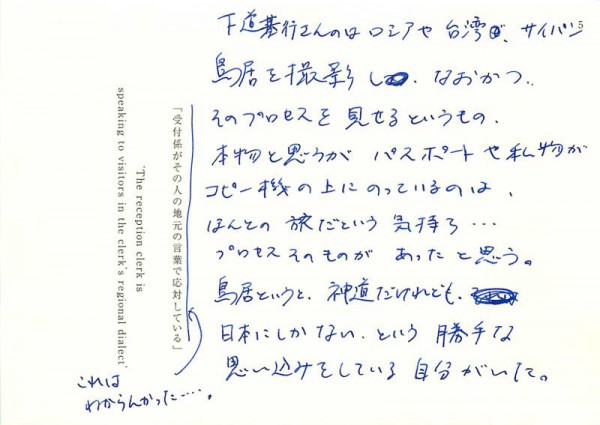 5
下道基行さんのはロシアや台湾、サイパン
鳥居を撮影し、なおかつ、
そのプロセスを見せるというもの、
本物と思うが パスポートや私物が
コピー機の上にのっているのは、
ほんとの旅だという気持ち…
プロセスそのものが あったと思う。
鳥居というと、神道だけれども、
日本にしかない、という勝手な
思い込みをしている自分がいた。
「受付係がその人の地元の言葉で応対している」
'The reception clerk is
speaking to visitors in the clerk's regional dialect'
これは
わからんかった…。